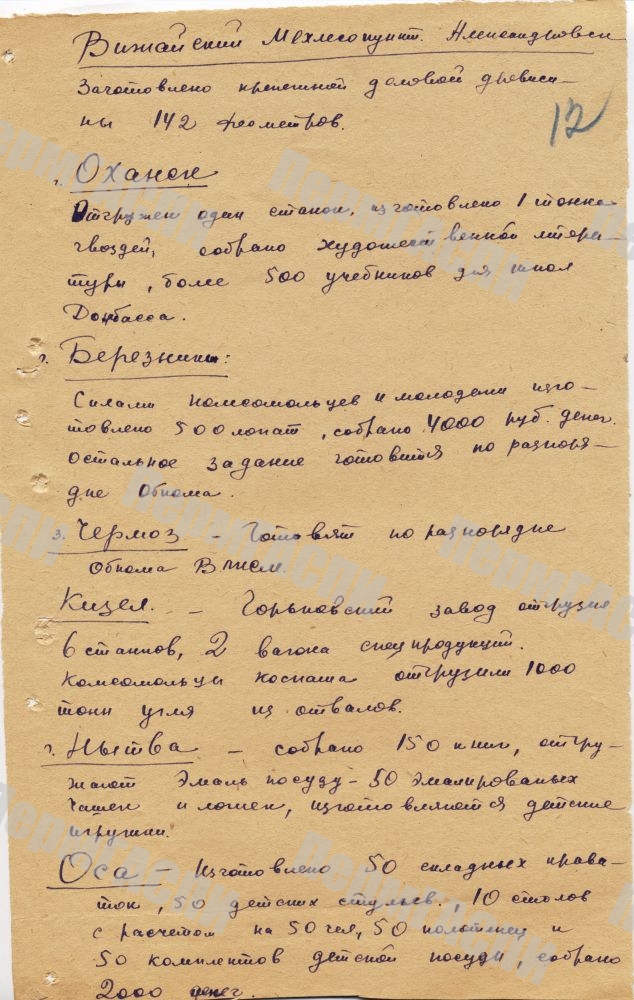 Вижайский Мехлесопункт. Александровск
Заготовлено крепежной деловой древиси-
ны 142 фсометров.
12
г. Оханск
Отгружен один станок, изготовлено 1 тонна
гвоздей, собрано художественной литера-
туры, более 500 учебников для школ
Донбасса.
г. Березники:
Силами комсомольцев и молодежи изго-
товлено 500 лопат, собрано 4000 руб. денег.
остальное задание готовится по разноря-
дке Обкома.
з. Чермоз - Готовят по разнорядке
Обкома ВЛКСМ.
Кизел. - Горьковский завод отгрузил
6 станков, 2 вагона спецпродукции.
Комсомольцы Коспаша отгрузили 1000
тонн угля из отвалов.
г. Нытва - собрано 150 книг, отгру-
жают эмаль посуду - 50 эмалированых
чашек и ложек, изготовляются детские
игрушки.
Оса - Изготовлено 50 складных крова-
ток, 50 детских стульев, 10 столов
с расчетом на 50 чел, 50 полотенец и
50 комплектов детской посуды, собрано
2000 денег.
ПермГАСПИ